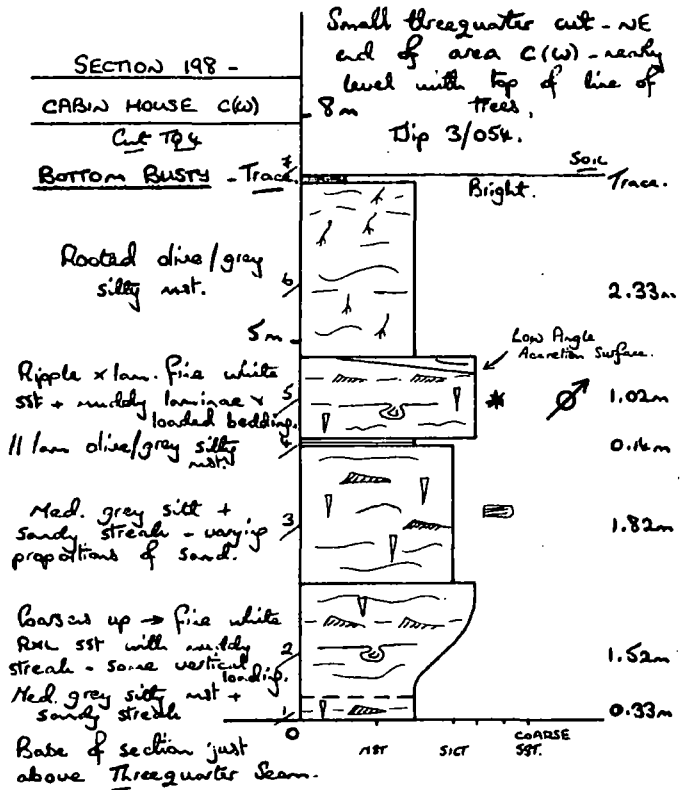 Small threequarter cut - NE
end of area C(W) - nearly
level with top of line of
trees.
Dip 3/054.
SECTION 198 -
CABIN HOUSE C(W)
Cut TQ4
8m
BOTTOM BUSTY - Trace.
7
SOIL
Bright.
Trace.
Rooted olive/grey
silty mst.
6
2.33m
5m
Low Angle
Accretion Surface.
Ripple x lam. fine white
sst + muddy laminae +
loaded bedding.
5
1.02m
// lam olive/grey silty
mst.
4
0.14m
Med. grey silt +
sandy streak - varying
proportions of sand.
3
1.82m
Coarsens up → fine white
RXL sst with muddy
streak - some vertical
loading.
2
1.52m
Med. grey silty mst +
sandy streak
1
0.33m
0
Base of section just
above Threequarter Seam.
MST
SICT
COARSE
SST.